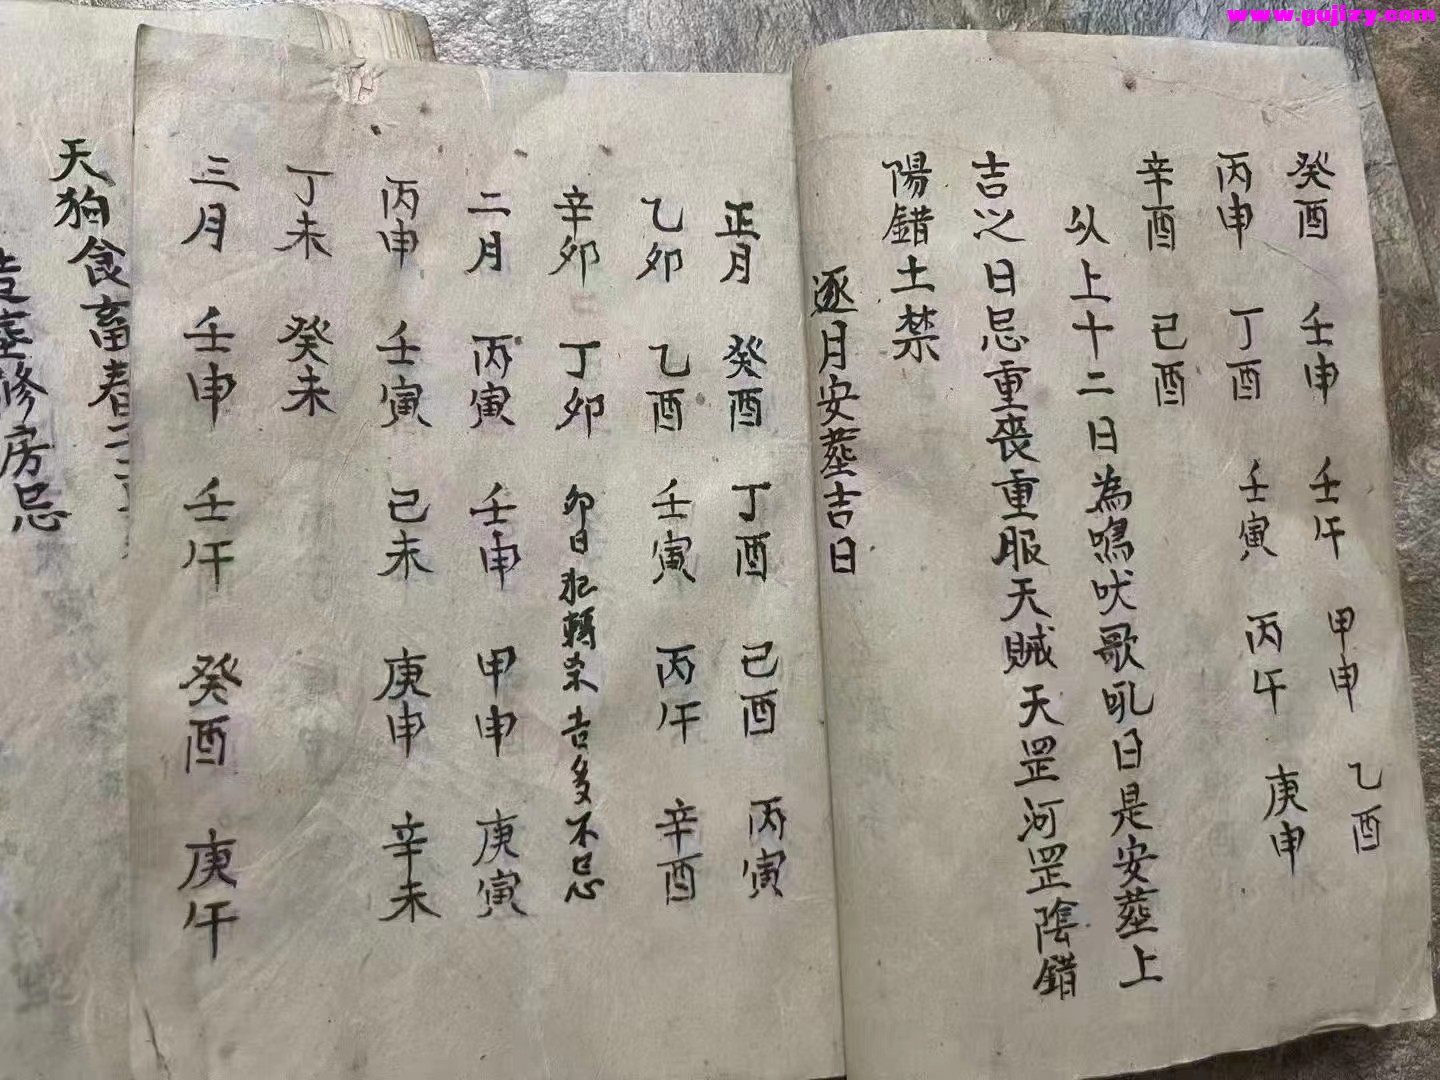 www.gujizy.com
癸酉 壬申 壬午 甲申 乙酉
丙申 丁酉 壬寅 丙午 庚申
辛酉 己酉
以上十二日為鳴吠歌吼日是安葬上
吉之日忌重喪重服天賊天罡河罡陰錯
陽錯土禁
逐月安葬吉日
正月 癸酉 丁酉 己酉 丙寅
乙卯 乙酉 壬寅 丙午 辛酉
辛卯 丁卯 卯日犯轉杀吉多不忌
二月 丙寅 壬申 甲申 庚寅
丙申 壬寅 己未 庚申 辛未
丁未 癸未
三月 壬申 壬午 癸酉 庚午
天狗食畜春
修房忌